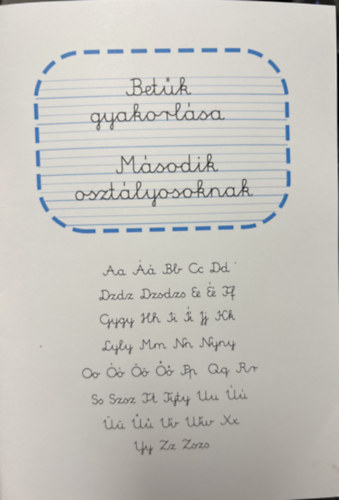 Betűk
gyakorlása
Második
osztályosoknak
Aa Áá Bb Cc Dd
Dzdz Dzsdzs Ee Éé Ff
Gygy Hh Ii Íí Jj Kk
Lyly Mm Nn Nyny
Oo Óó Öö Őő Pp Qq Rr
Ss Szsz Tt Tyty Uu Úú
Üü Űű Vv Ww Xx
Yy Zz Zszs